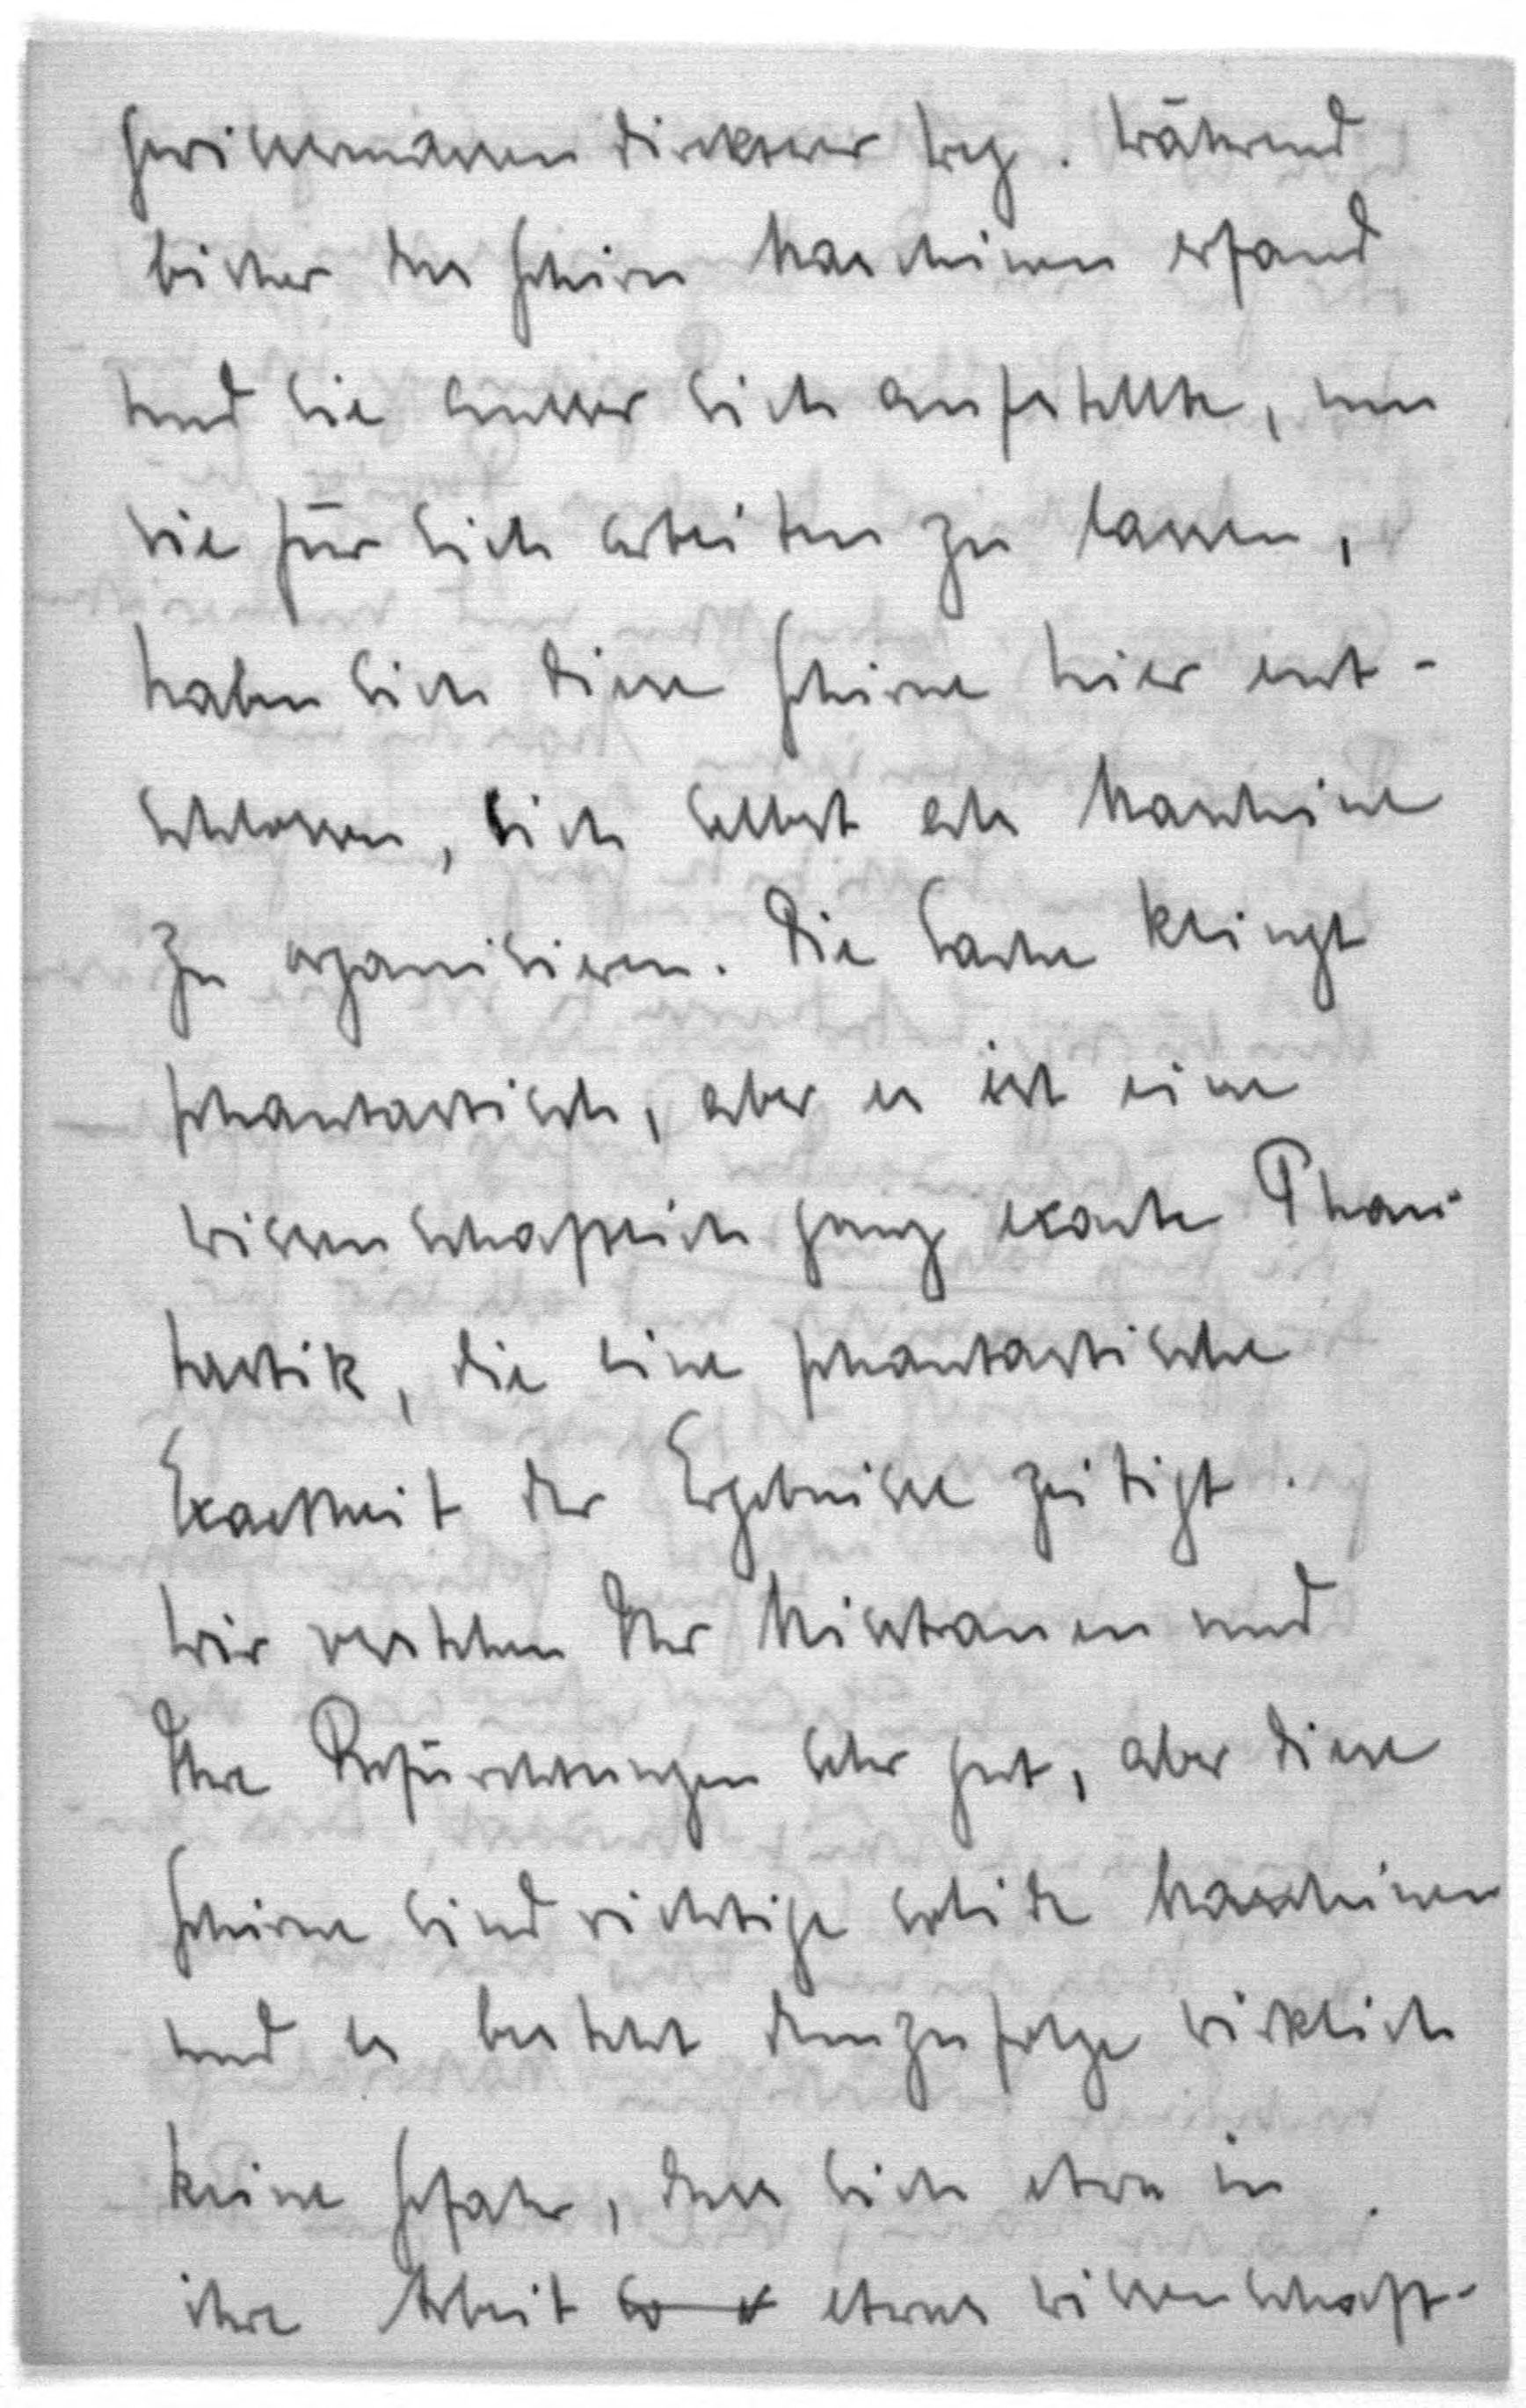 gewissermassen direkterer Weg. Während
bisher das Gehirn Maschinen erfand
und sie ausser sich aufstellte, um
sie für sich arbeiten zu lassen,
haben sich diese Gehirne hier ent-
schlossen, sich selbst als Maschine
zu organisieren. Die Sache klingt
phantastisch, aber es ist eine
wissenschaftlich ganz exacte Phan-
tastik, die eine phantastische
Exactheit der Ergebnisse zeitigt.
Wir verstehen Ihr Misstrauen und
Ihre Befürchtungen sehr gut, aber diese
Gehirne sind richtige solide Maschinen
und es besteht demzufolge wirklich
keine Gefahr, dass sich etwa in
ihre Arbeit so etwas wissenschaft-